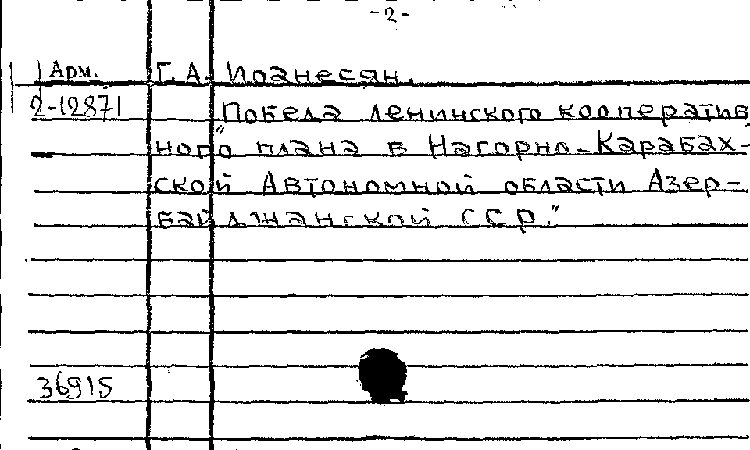 -2-
Арм. Г. А. Иоанесян.
2-12871 "Победа ленинского кооператив
ного плана в Нагорно-Карабах-
ской Автономной области Азер-
байджанской ССР."
36915